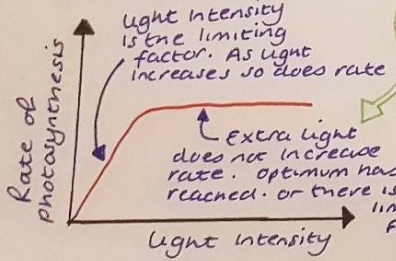 Light Intensity
is the limiting
factor. As light
increases so does rate
Rate of
photosynthesis
Extra light
does not increase
rate. optimum has
reached. or there is
lim
Light Intensity